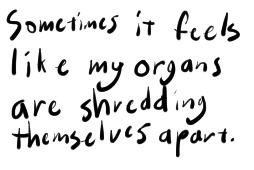 Sometimes it feels
like my organs
are shredding
themselves apart.